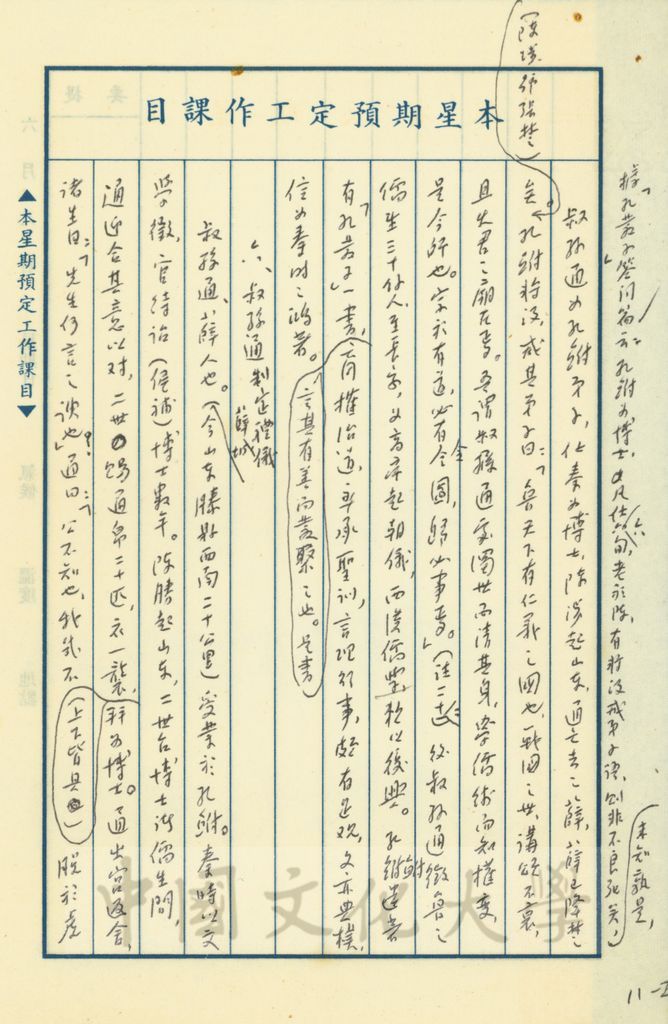 本星期預定工作課目
(陳涉號張楚)
據「孔叢子」答問篇云:孔鮒為博士,凡仕六旬,老於陳,有將沒戒弟子語,則非不良死矣,
未知孰是,
叔孫通為孔鮒弟子,仕秦為博士,陳涉起山東,通亡去之薛,薛已降楚
矣。孔鮒將沒,戒其弟子曰:「魯天下有仁義之國也,戰國之世,講頌不衰,
且先君之廟在焉。吾謂叔孫通處濁世而清其身,學儒術而知權變,
是今師也。宗於有道,必有令圖,歸必事焉。」(註二十 後叔孫通徵魯之
儒生三十餘人,至長安,為高帝起朝儀,西漢儒學於以復興。孔鮒遺著
有「孔叢子」一書,言簡權治道,率承聖訓,言理行事,頗有足觀,文亦典樸,
言其有善而叢聚之也。是書
信為秦時之鴻著。
六、叔孫通制定禮儀
薛城
叔孫通,薛人也。(今山東滕縣西南二十公里)受業於孔鮒。秦時以文
學徵,官待詔(候補)博士數年。陳勝起山東,二世召博士諸儒生問,
通迎合其意以對,二世賜通帛二十匹,衣一襲,拜為博士。通出宮返舍,
諸生曰:「先生何言之諛也?」通曰:「公不知也,我幾不
(上下皆具)脫於虎
▲本星期預定工作課目▼
中國文化大學
11-2